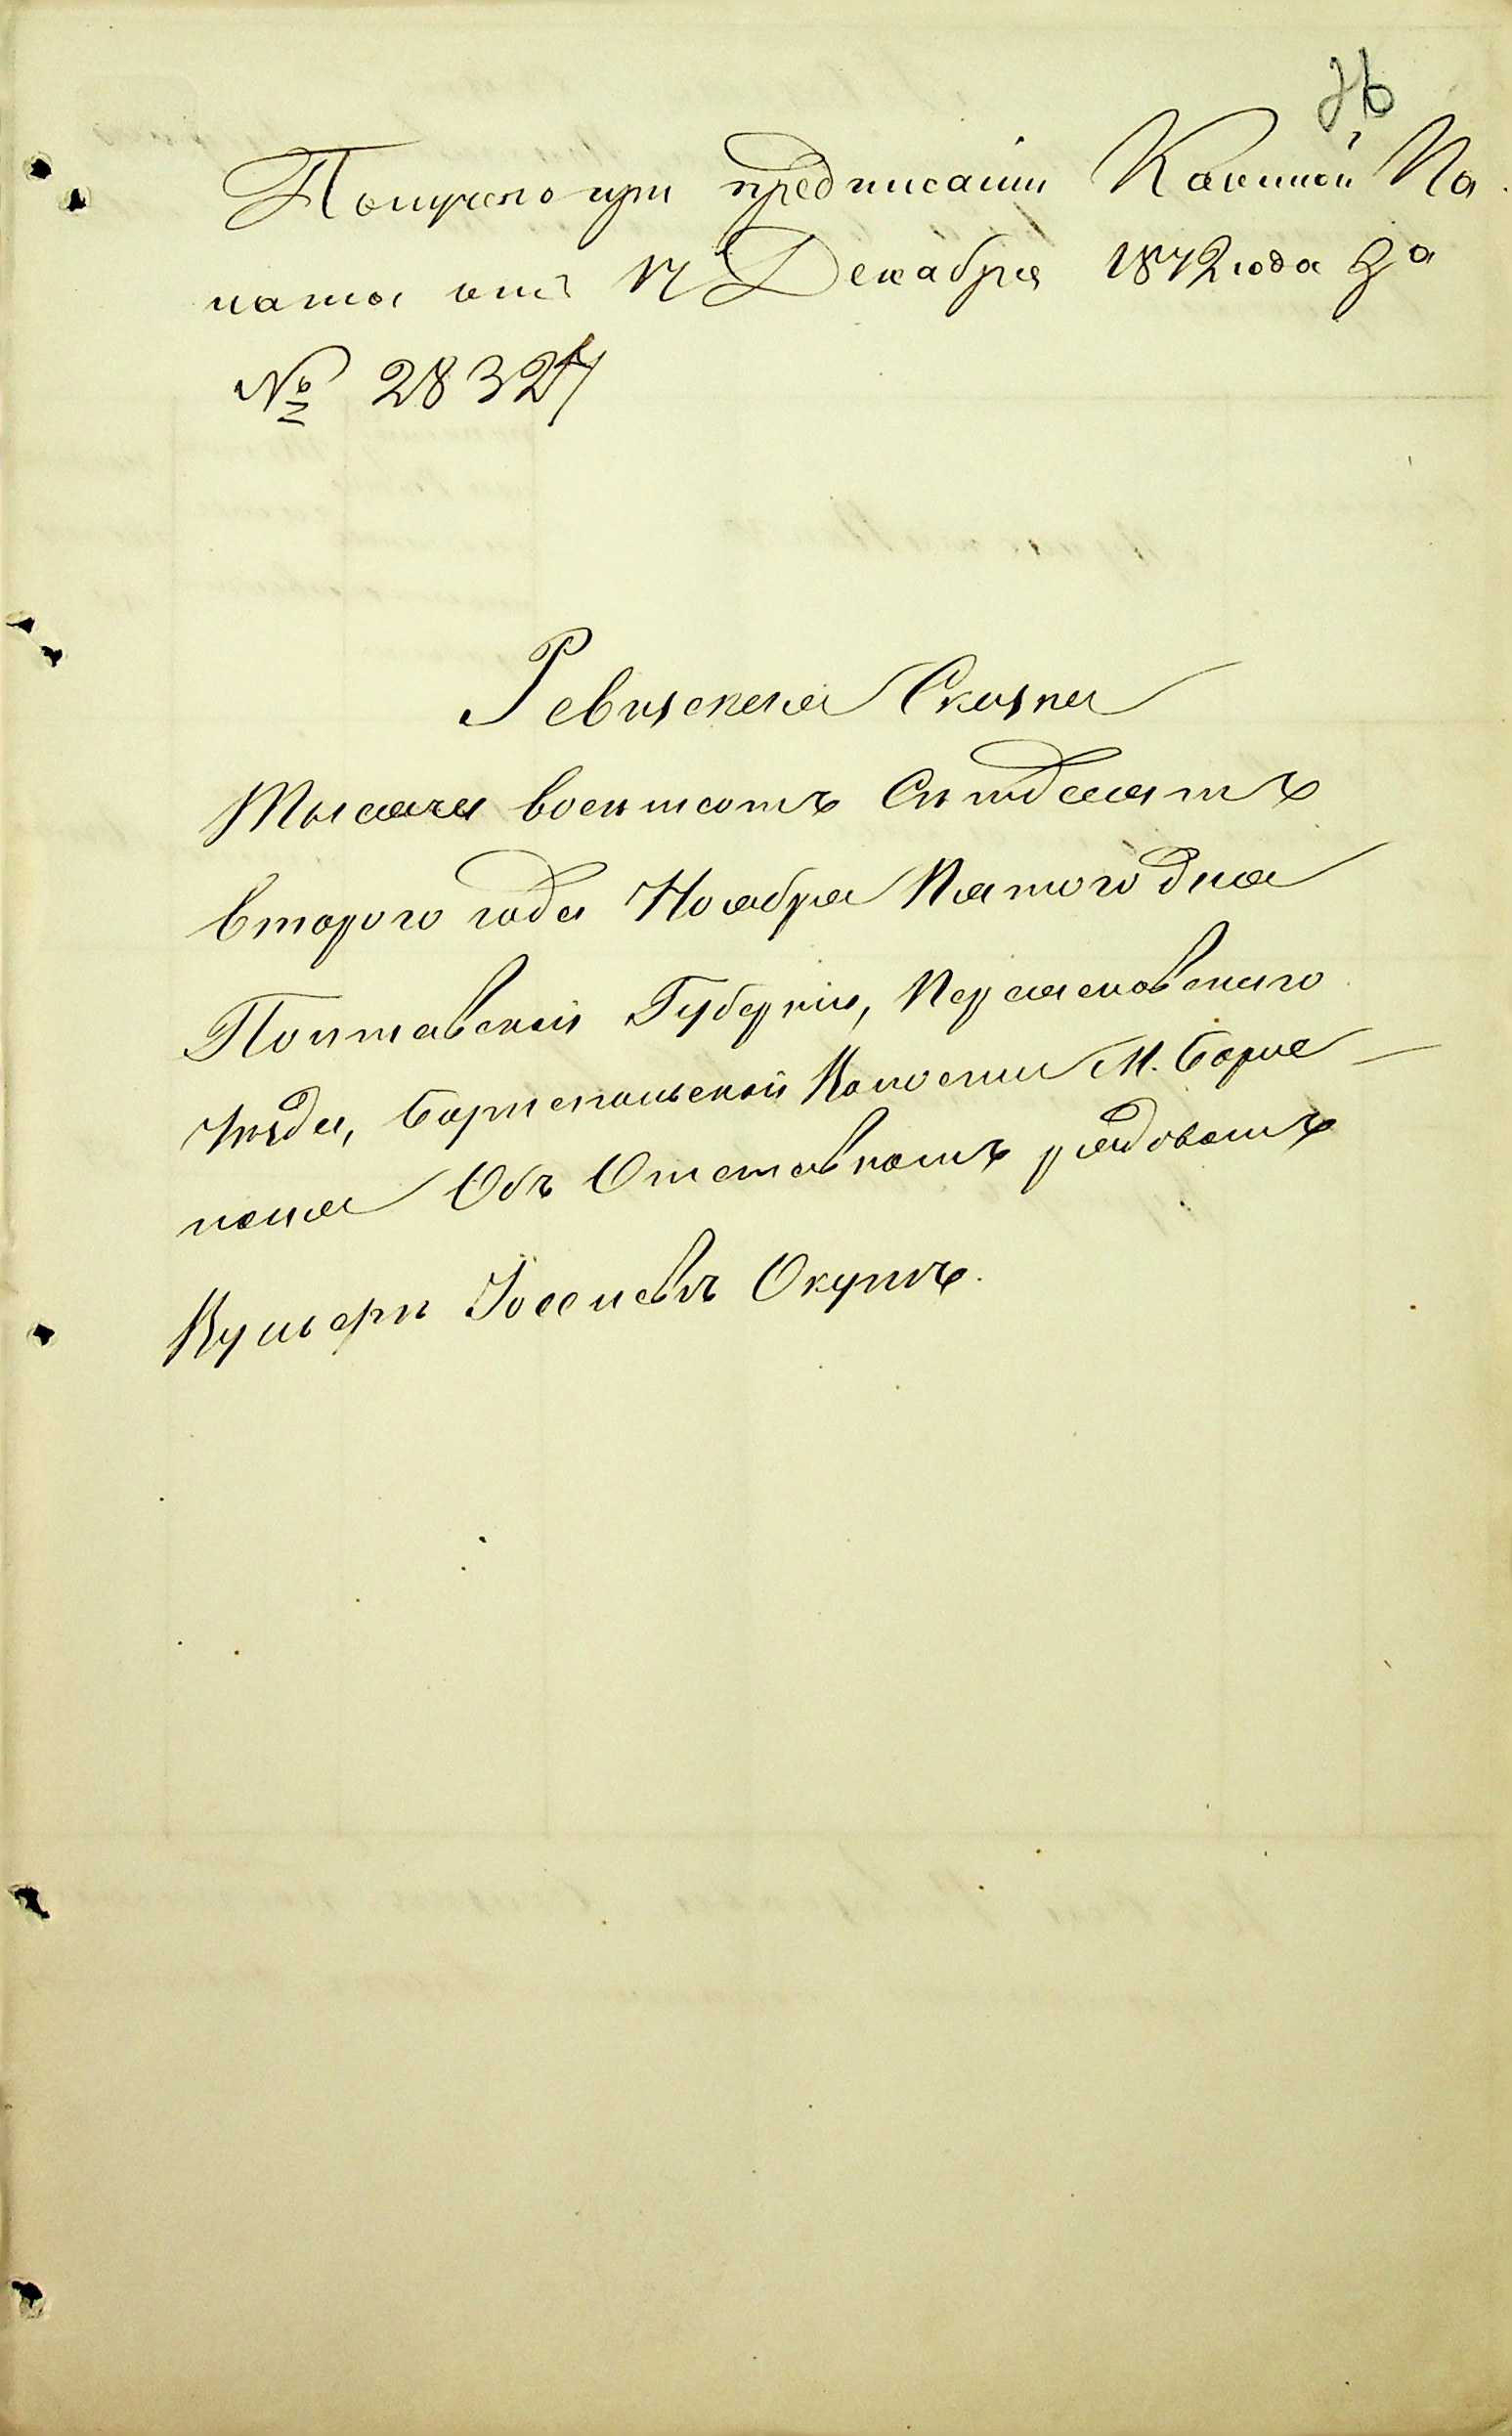 26
Получено при предписаніи Казенной Па
латы отъ 17 Декабря 1872 года За
№ 28327
Ревизская Сказка
Тысяча восемсотъ Семдесятъ
второго года Ноября Пятого дня
Полтавской Губерніи, Переясловского
Уезда, Бориспольской Волости М. Борис
поля Объ Отставномъ рядовомъ
Іоселевъ Окунъ.